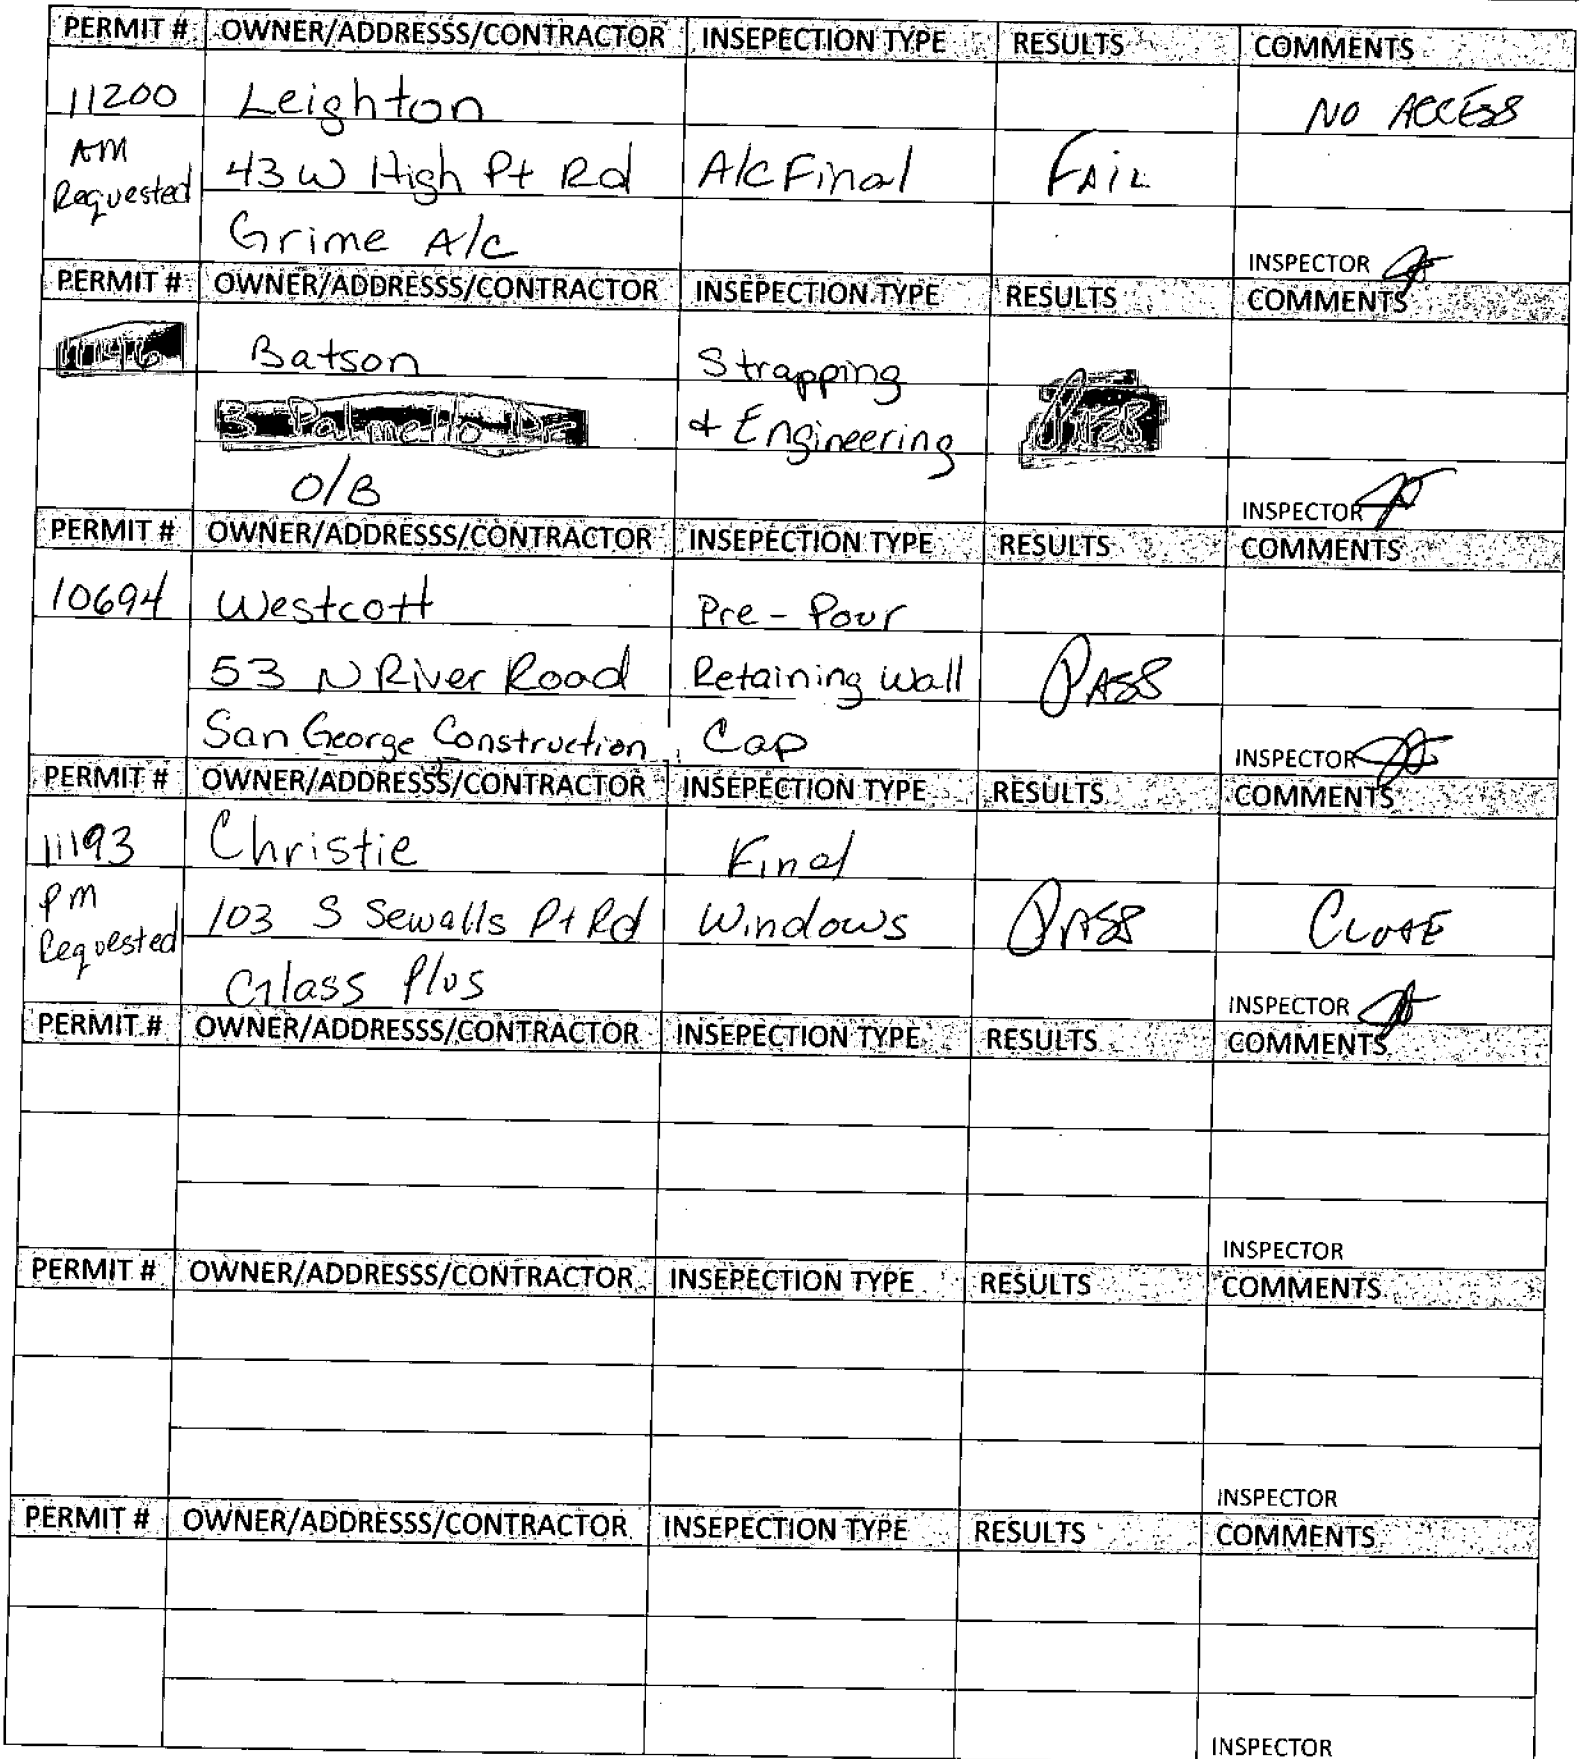 PERMIT # OWNER/ADDRESSS/CONTRACTOR INSEPECTION TYPE RESULTS COMMENTS
11200 Leighton NO ACCESS
AM Requested 43 W High Pt Rd A/C Final FAIL
Grime A/C
INSPECTOR
PERMIT # OWNER/ADDRESSS/CONTRACTOR INSEPECTION TYPE RESULTS COMMENTS
11146 Batson Strapping
3 Palmetto Dr & Engineering PASS
O/B
INSPECTOR
PERMIT # OWNER/ADDRESSS/CONTRACTOR INSEPECTION TYPE RESULTS COMMENTS
10694 Westcott Pre-Pour
53 N River Road Retaining Wall PASS
San George Construction Cap
INSPECTOR
PERMIT # OWNER/ADDRESSS/CONTRACTOR INSEPECTION TYPE RESULTS COMMENTS
11193 Christie Final
PM Requested 103 S Sewalls Pt Rd Windows PASS CLOSE
Glass Plus
INSPECTOR
PERMIT # OWNER/ADDRESSS/CONTRACTOR INSEPECTION TYPE RESULTS COMMENTS
INSPECTOR
PERMIT # OWNER/ADDRESSS/CONTRACTOR INSEPECTION TYPE RESULTS COMMENTS
INSPECTOR
PERMIT # OWNER/ADDRESSS/CONTRACTOR INSEPECTION TYPE RESULTS COMMENTS
INSPECTOR